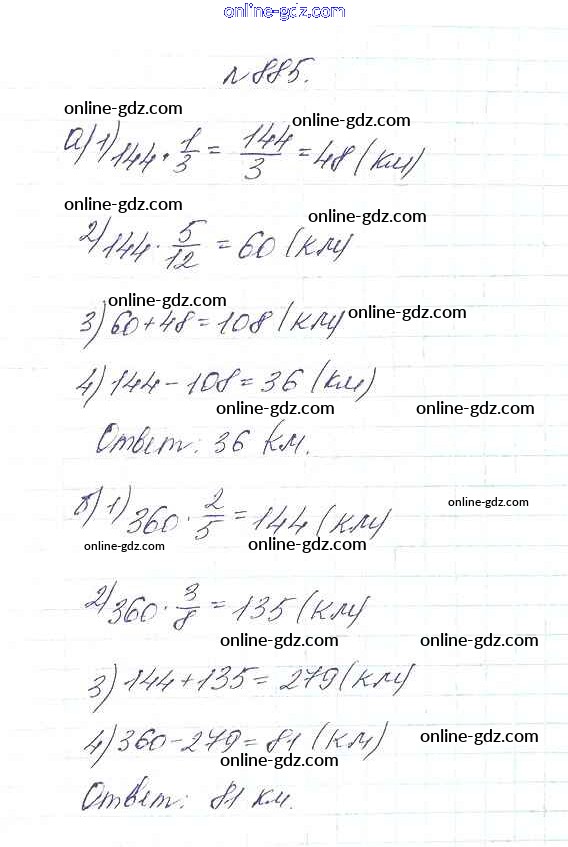 online-gdz.com
№885.
online-gdz.com
а) 1) 144 · 1/3 = 144/3 = 48 (км)
online-gdz.com
online-gdz.com online-gdz.com
2) 144 · 5/12 = 60 (км)
online-gdz.com online-gdz.com
3) 60 + 48 = 108 (км)
4) 144 - 108 = 36 (км)
online-gdz.com online-gdz.com
Ответ: 36 км.
online-gdz.com
б) 1) 360 · 2/5 = 144 (км)
online-gdz.com online-gdz.com
2) 360 · 3/8 = 135 (км)
online-gdz.com online-gdz.com
3) 144 + 135 = 279 (км)
online-gdz.com
4) 360 - 279 = 81 (км)
online-gdz.com
Ответ: 81 км.